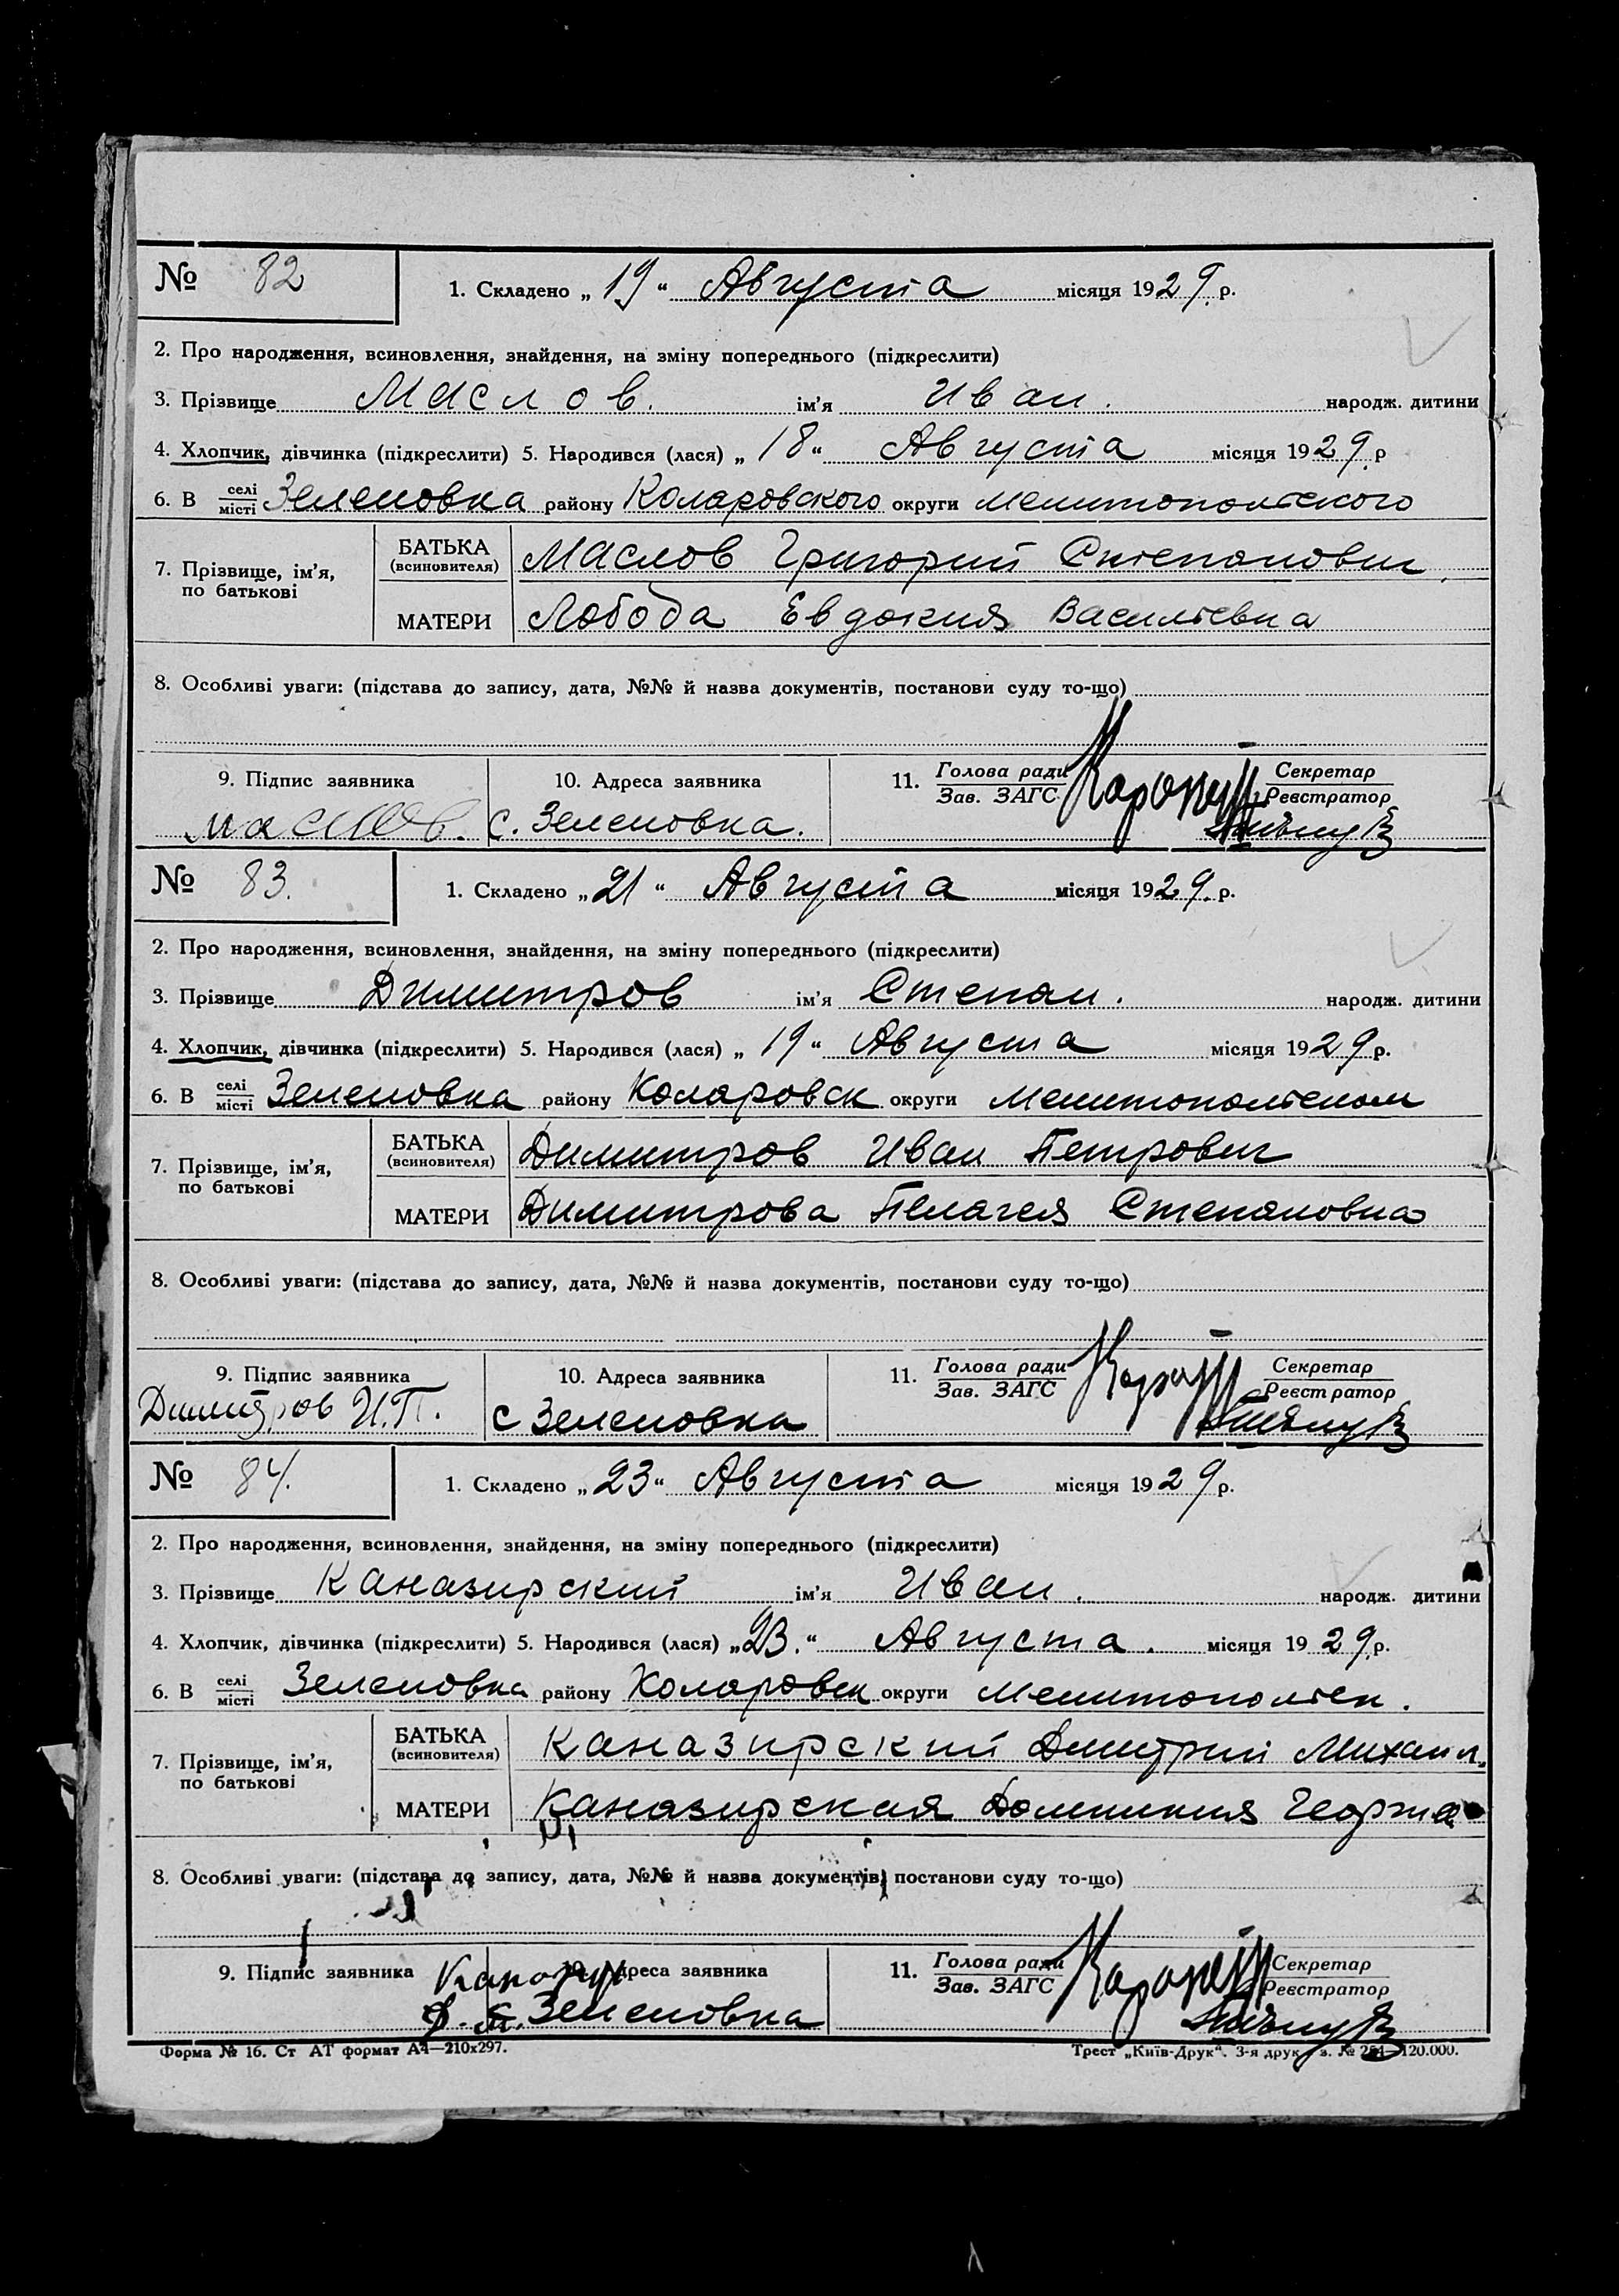 № 82 1. Складено „19“ Августа місяця 1929 р.
2. Про народження, всиновлення, знайдення, на зміну попереднього (підкреслити)
3. Прізвище Маслов. ім’я Иван. народж. дитини
4. Хлопчик, дівчинка (підкреслити) 5. Народився (лася) „18“ Августа місяця 1929 р
6. В селі/місті Зеленовка району Коларовского округи Мелитопольского
7. Прізвище, ім’я, по батькові
БАТЬКА (всиновителя) Маслов Григорий Степанович
МАТЕРИ Лобода Евдокия Васильевна
8. Особливі уваги: (підстава до запису, дата, №№ й назва документів, постанови суду то-що)
9. Підпис заявника 10. Адреса заявника 11. Голова ради/Зав. ЗАГС Секретар/Реєстратор
Маслов. с. Зеленовка.
№ 83. 1. Складено „21“ Августа місяця 1929. р.
2. Про народження, всиновлення, знайдення, на зміну попереднього (підкреслити)
3. Прізвище Димитров ім’я Степан. народж. дитини
4. Хлопчик, дівчинка (підкреслити) 5. Народився (лася) „19“ Августа місяця 1929 р.
6. В селі/місті Зеленовка району Коларовск округи Мелитопольском
7. Прізвище, ім’я, по батькові
БАТЬКА (всиновителя) Димитров Иван Петрович
МАТЕРИ Димитрова Пелагея Степановна
8. Особливі уваги: (підстава до запису, дата, №№ й назва документів, постанови суду то-що)
9. Підпис заявника 10. Адреса заявника 11. Голова ради/Зав. ЗАГС Секретар/Реєстратор
Димитров И.П. с Зеленовка
№ 84. 1. Складено „23“ Августа місяця 1929 р.
2. Про народження, всиновлення, знайдення, на зміну попереднього (підкреслити)
3. Прізвище Каназирский ім’я Иван. народж. дитини
4. Хлопчик, дівчинка (підкреслити) 5. Народився (лася) „23.“ Августа. місяця 1929 р.
6. В селі/місті Зеленовка району Коларовск округи Мелитопольск.
7. Прізвище, ім’я, по батькові
БАТЬКА (всиновителя) Каназирский Дмитрий Михаил.
МАТЕРИ Каназирская Домникия Георги
8. Особливі уваги: (підстава до запису, дата, №№ й назва документів, постанови суду то-що)
9. Підпис заявника 10. Адреса заявника 11. Голова ради/Зав. ЗАГС Секретар/Реєстратор
с. Зеленовка
Форма № 16. Ст АТ формат А4—210х297. Трест „Київ-Друк“. 3-я друк. з. № 284—120.000.